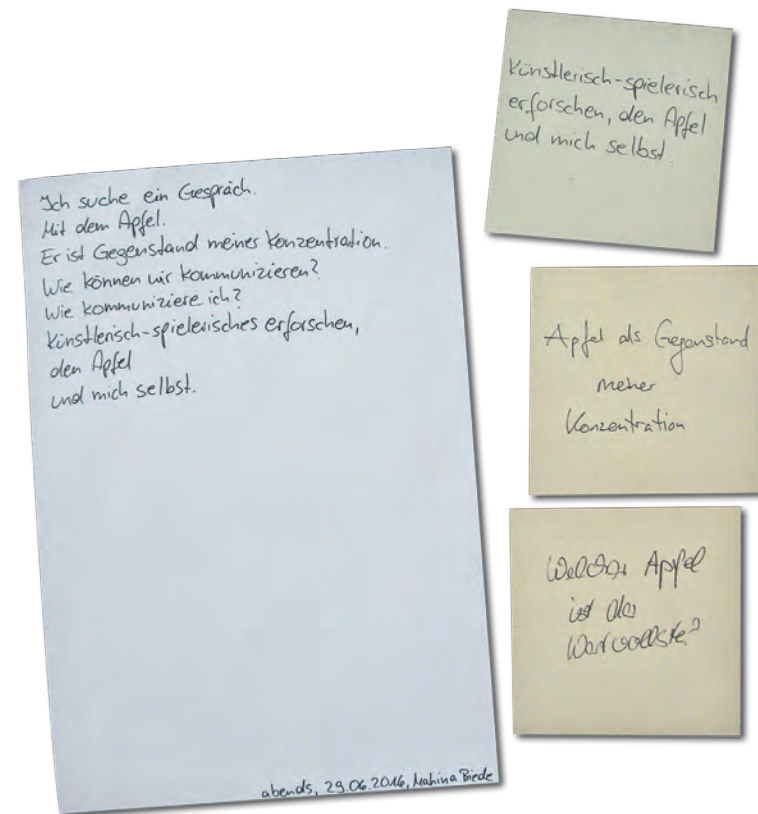 Ich suche ein Gespräch.
Mit dem Apfel.
Er ist Gegenstand meiner Konzentration.
Wie können wir kommunizieren?
Wie kommuniziere ich?
Künstlerisch-spielerisches erforschen,
den Apfel
und mich selbst.
abends, 29.06.2016, Mahina Biede
Künstlerisch-spielerisch
erforschen, den Apfel
und mich selbst.
Apfel als Gegenstand
meiner
Konzentration
Welcher Apfel
ist der
Wertvollste?